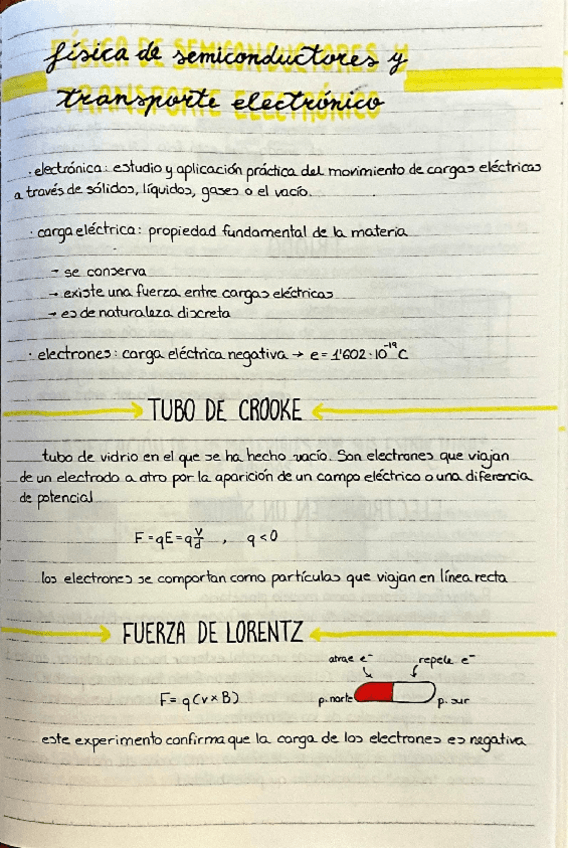 física de semiconductores y
transporte electrónico
· electrónica: estudio y aplicación práctica del movimiento de cargas eléctricas
a través de sólidos, líquidos, gases o el vacío.
· carga eléctrica: propiedad fundamental de la materia
→ se conserva
→ existe una fuerza entre cargas eléctricas
→ es de naturaleza discreta
· electrones: carga eléctrica negativa → e = 1'602·10⁻¹⁹ C
TUBO DE CROOKE
tubo de vidrio en el que se ha hecho vacío. Son electrones que viajan
de un electrodo a otro por la aparición de un campo eléctrico o una diferencia
de potencial
F = qE = q V/d , q < 0
los electrones se comportan como partículas que viajan en línea recta
FUERZA DE LORENTZ
atrae e⁻ repele e⁻
F = q (v × B) p. norte p. sur
este experimento confirma que la carga de los electrones es negativa